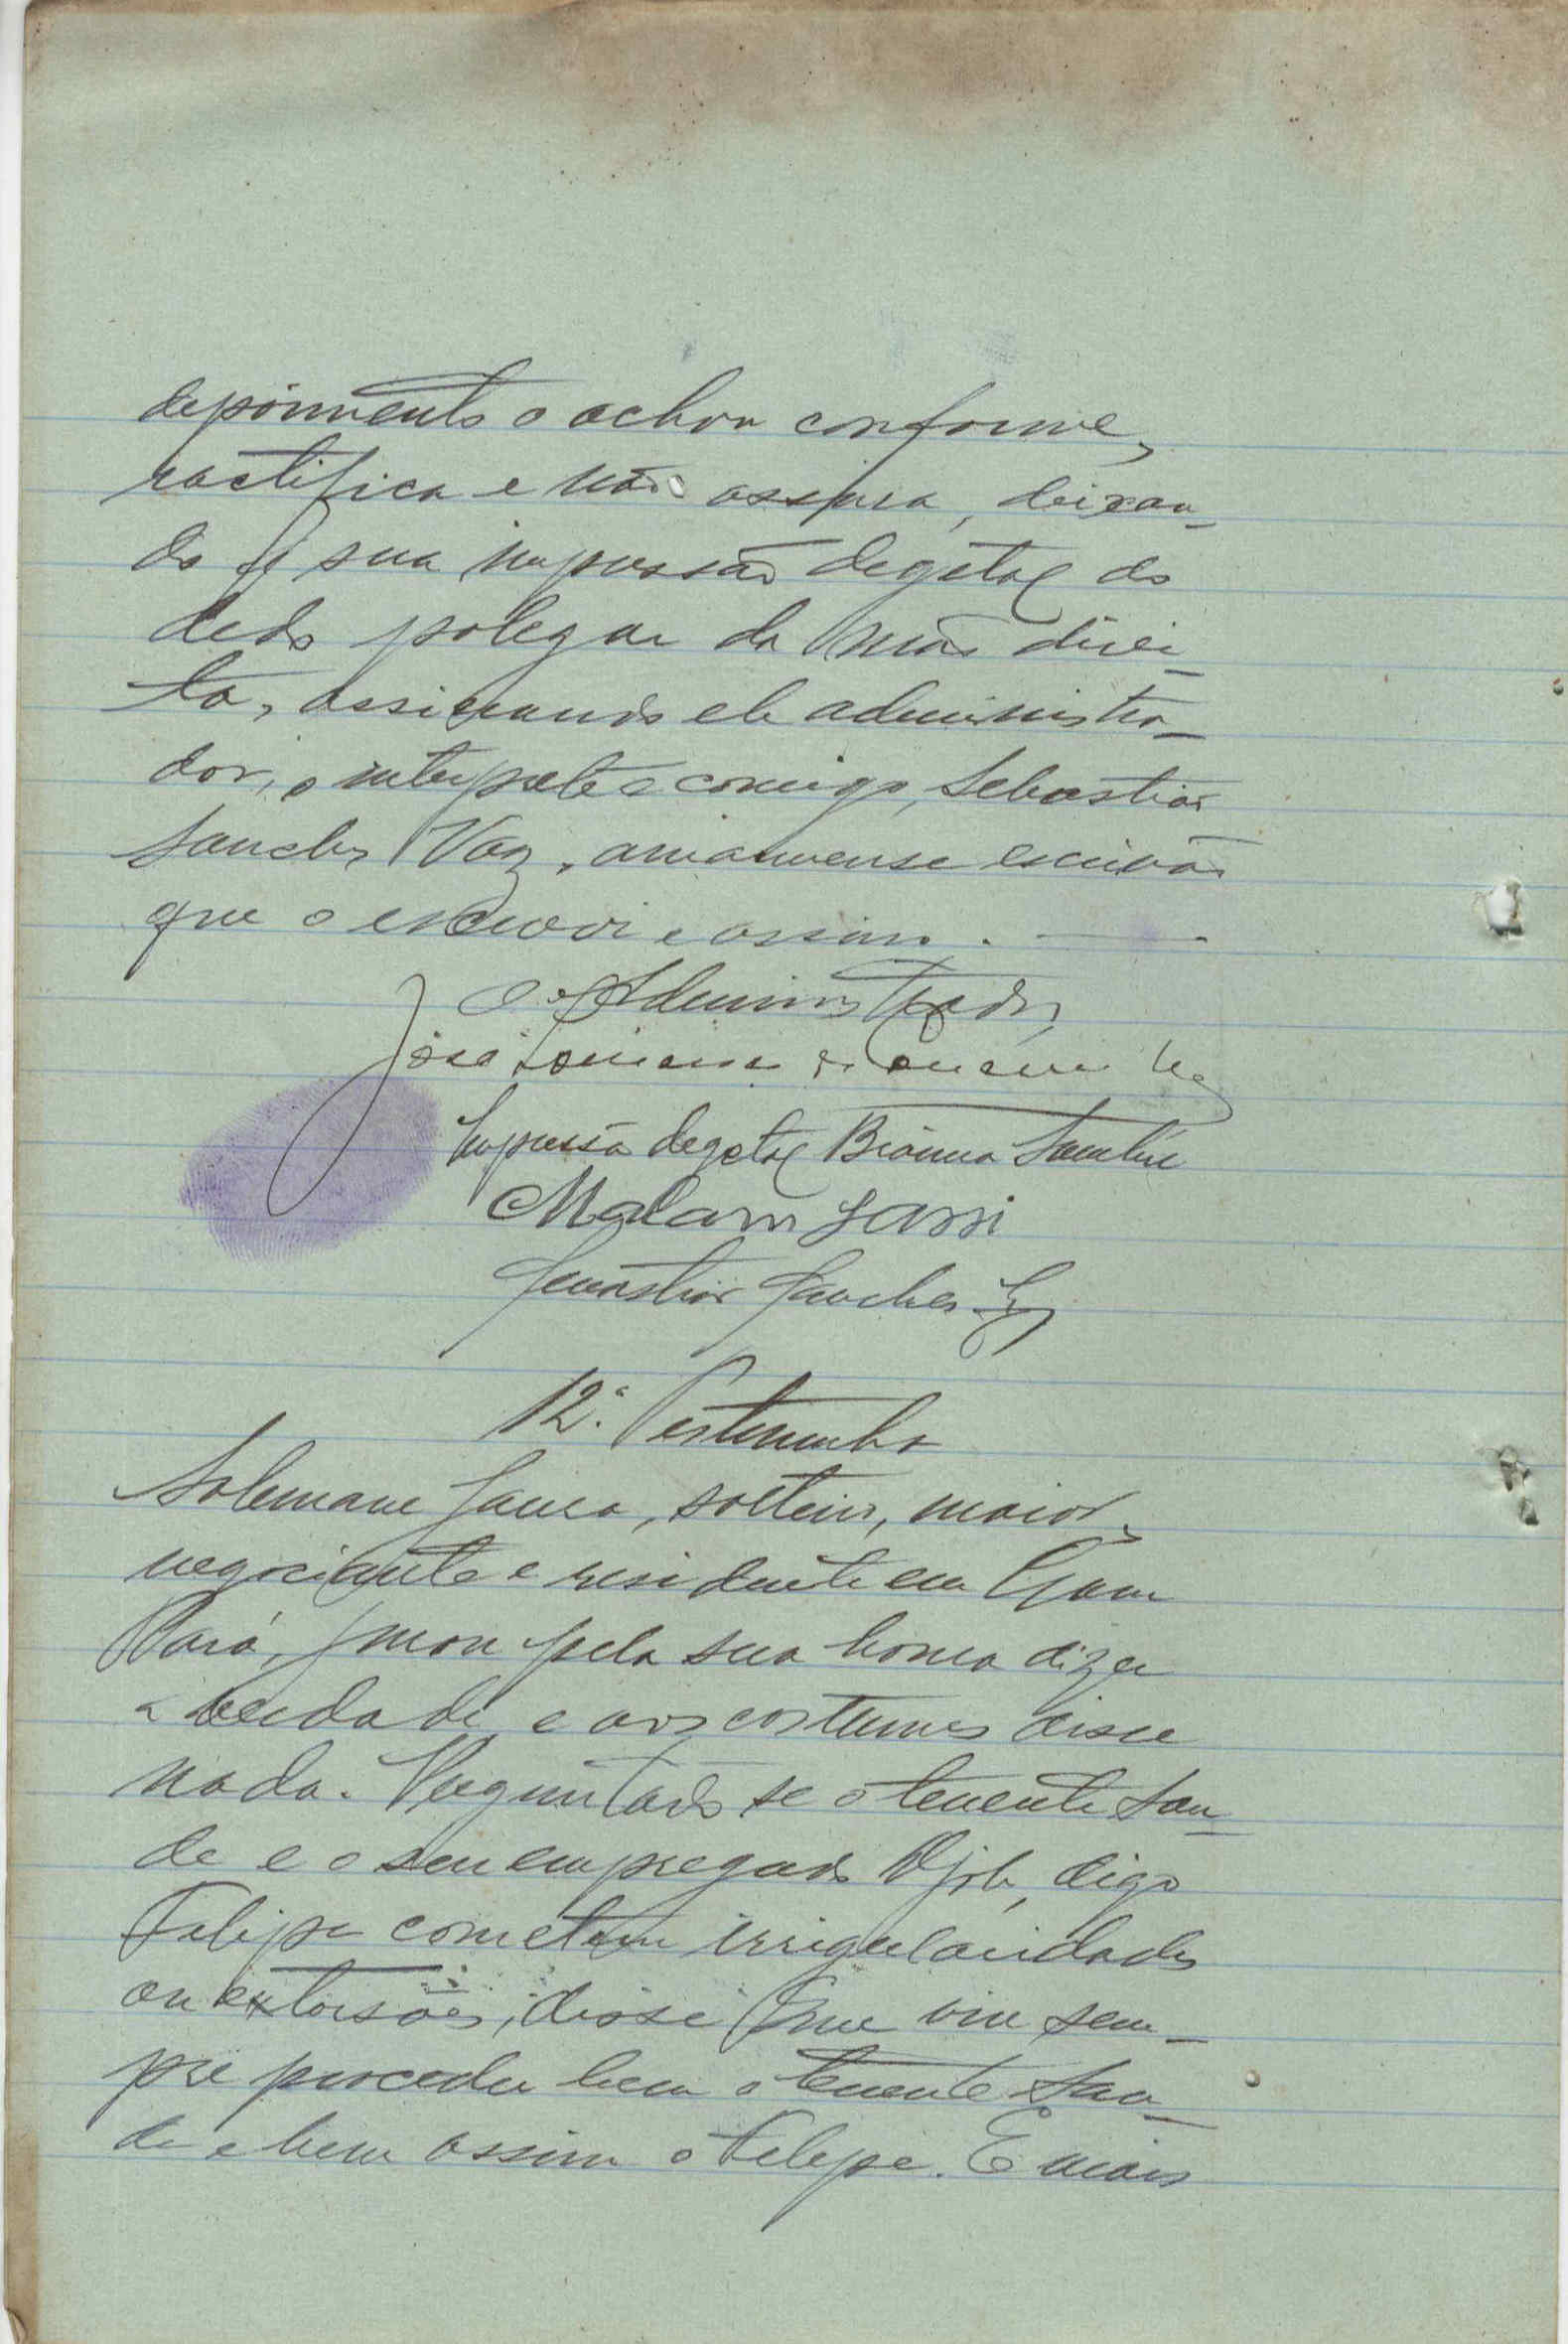 depoimento o achou conforme,
ractifica e não assina, deixan-
do a sua impressão degetal do
dedo polegar da mão direi-
ta, assinando ele administra-
dor, o interprete e comigo, Sebastião
Sanches Vaz, amanuense escrivão
que o escrevi e assino. —
O Administrador,
José
Impressão degetal Bránma Sambú
Malam Sassi
Sebastião Sanches Vaz
12.ª Testemunha
Solemane Sanca, solteiro, maior,
negociante e residente em Gam
Pará, jurou pela sua honra dizer
a verdade e aos costumes disse
nada. Perguntado se o tenente San-
de e o seu empregado Djob, digo
Felipe cometem irregularidades
ou extorsões, disse que viu sem-
pre proceder bem o tenente San-
de e bem assim o Felipe. E mais